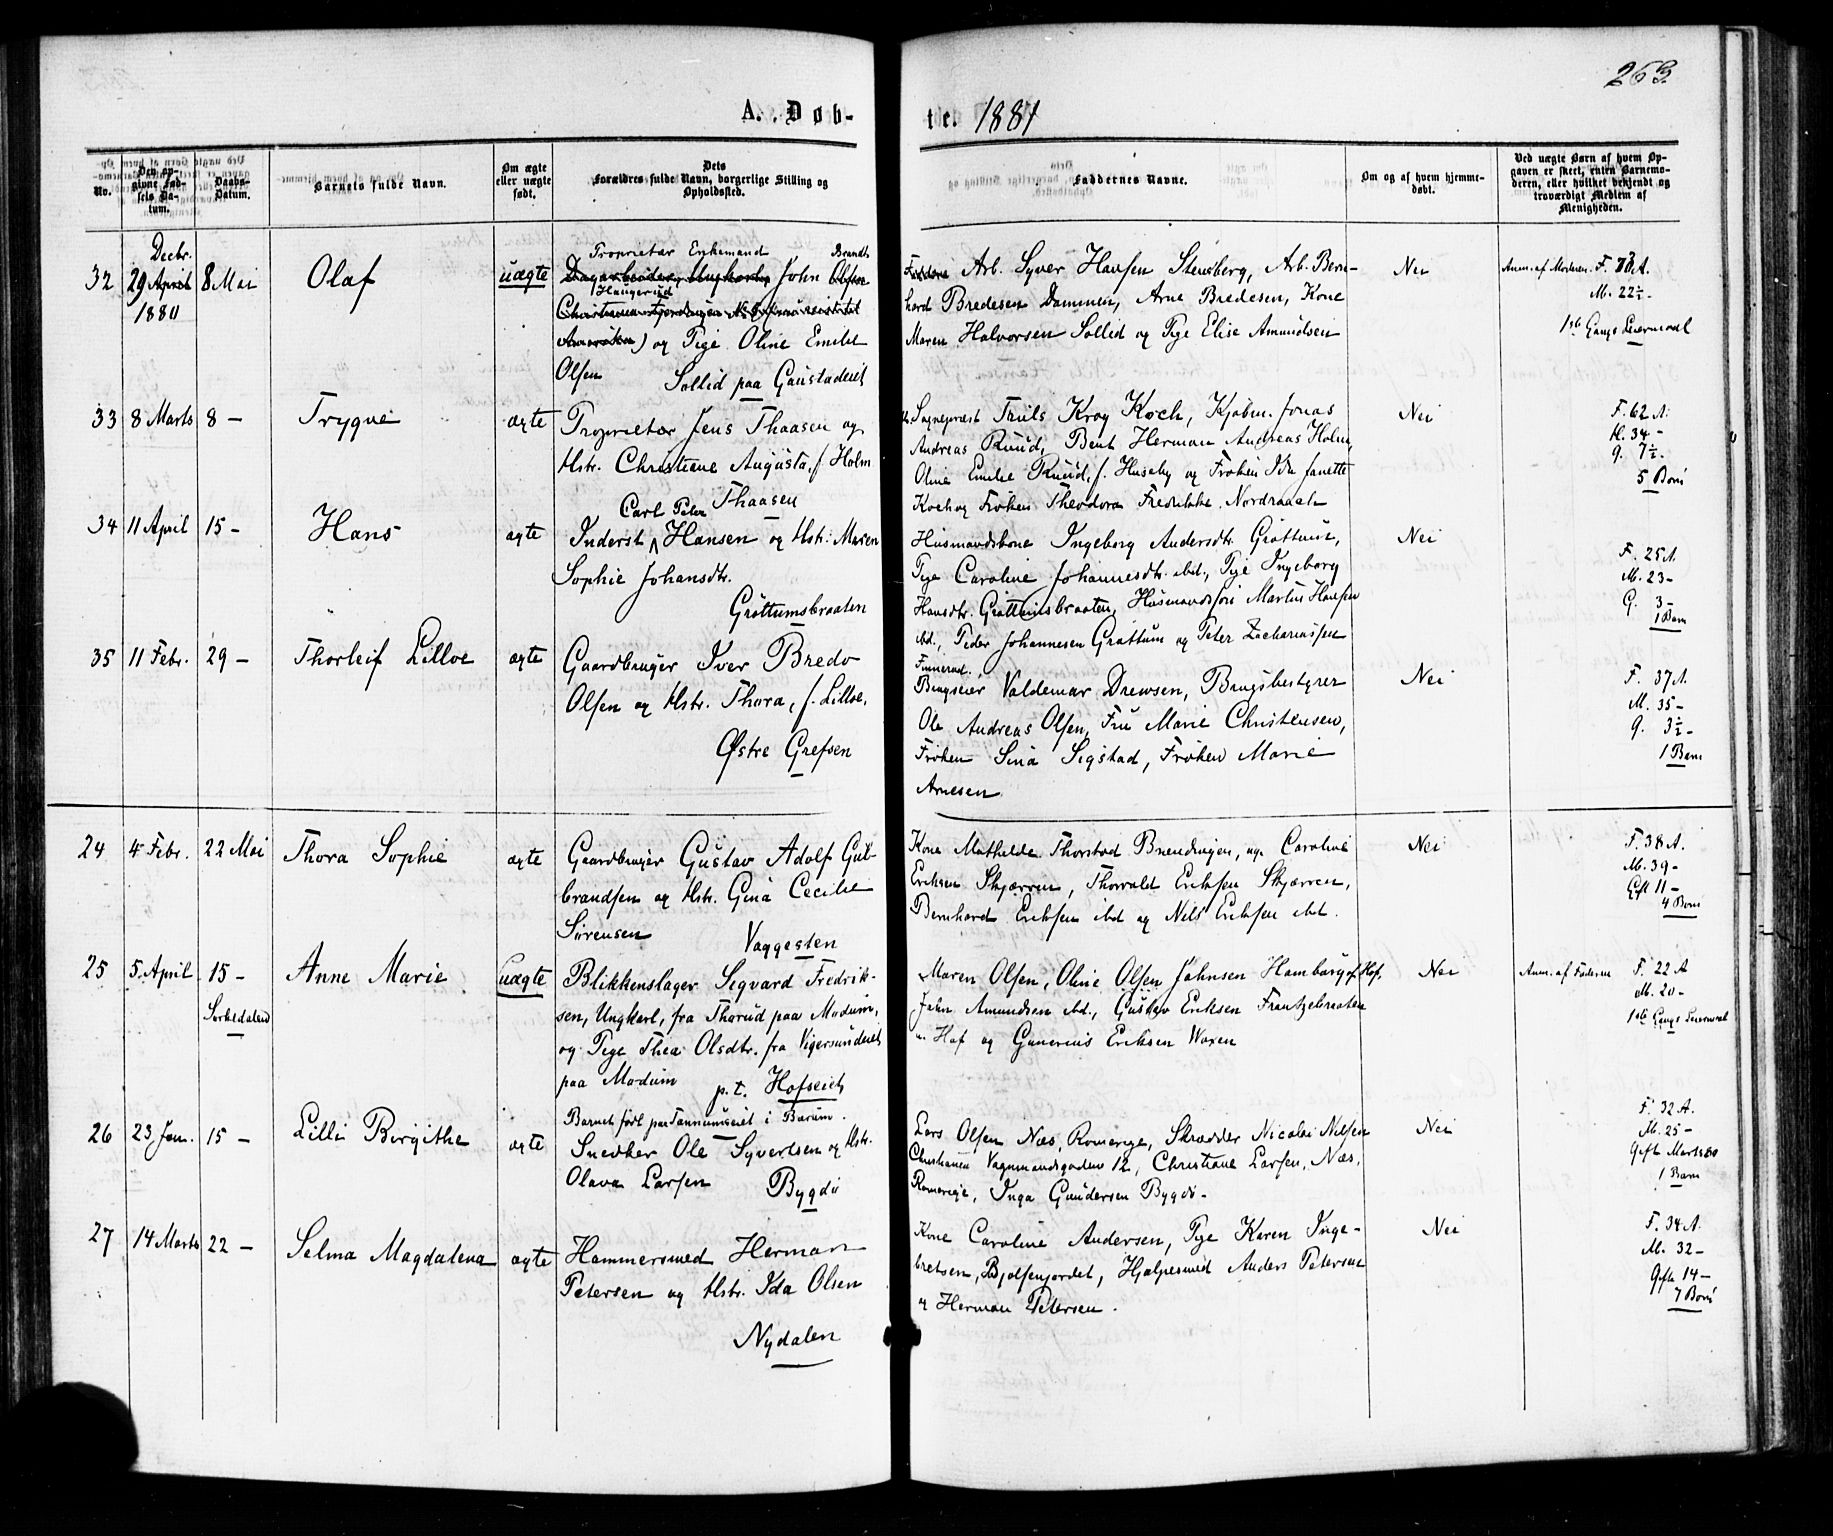 263.
A. Døb-
te. 1881
No.
Den op-
givne Fød-
sels Da-
tum.
Daabs-
Datum.
Barnets fulde Navn.
Om ægte
eller uægte
født.
Dets
Forældres fulde Navn, borgerlige Stilling og
Opholdssted.
Faddernes Navne.
Om og af hvem hjemme-
døbt.
Ved uægte Børn af hvem Op-
gaven er skeet, enten Barnemo-
deren, eller hvilket bekjendt og
troværdigt Medlem af
Menigheden.
32
Decbr.
29 April
1880
8 Mai
Olaf
uægte
Proprietær Enkemand Brandt
Dagarbeider, Ungkarl, John Olsen
Haugerud
og Pige Oline Emilie
Olsen Sollid paa Gaustadeiet
Arb. Syver Hansen Stensberg, Arb. Bern-
hard Bredesen Dammen, Arne Bredesen, Kone
Maren Halvorsen Sollid og Pige Elise Amundsen
Nei
Anm. af Moderen. F. 73 A.
M. 22½-
1ste Gangs Leiermaal
33
8 Marts
8 -
Trygve
ægte
Proprietær Jens Thaasen og
Hstr. Christiane Augusta, f. Holm
Thaasen
Sogneprest Truls Krog Koch, Kjøbm. Jonas
Andreas Ruud, Bent Herman Andreas Holm,
Oline Emilie Ruud, f. Huseby og Frøken Ida Janette
Koch og Frøken Theodora Fredrikke Nordraach
Nei
F. 62 A.
M. 34 -
G. 7½-
5 Børn
34
11 April
15 -
Hans
ægte
Carl Peter
Inderst Hansen og Hstr. Maren
Sophie Johansdtr.
Grøttumsbraaten
Husmandskone Ingeborg Andersdtr. Grøttum,
Pige Caroline Johannesdtr. ibd., Pige Ingeborg
Hansdtr. Grøttumsbraaten, Husmandssøn Martin Hansen
ibd., Peder Johannesen Grøttum og Peter Zachariassen
Finnerud.
Nei
F. 25 A.
M. 23 -
G. 3 -
1 Barn
35
11 Febr.
29 -
Thorleif Lilloe
ægte
Gaardbruger Iver Bredo
Olsen og Hstr. Thora, f. Lilloe,
Østre Grefsen
Brugseier Valdemar Drewsen, Brugsbestyrer
Ole Andreas Olsen, Fru Marie Christensen,
Frøken Sina Sigstad, Frøken Marie
Arnesen.
Nei
F. 37 A.
M. 35 -
G. 3½-
1 Barn
24
4 Febr.
22 Mai
Thora Sophie
ægte
Gaardbruger Gustav Adolf Gul-
brandsen og Hstr. Gina Cecilie
Sørensen Vaggesten
Kone Mathilde Thorstad Brændingen, ug. Caroline
Eriksen Skjærren, Thorvald Eriksen Skjærren,
Bernhard Eriksen ibd og Nils Eriksen ibd.
Nei
F. 38 A.
M. 39 -
Gift 11 -
4 Børn
25
5. April
15 -
Sørkedalen
Anne Marie
uægte
Blikkenslager Segvard Fredrik-
sen, Ungkarl, fra Thorud paa Modum,
og Pige Thea Olsdtr. fra Vigersundeiet
paa Modum p. t. Hofseiet
Maren Olsen, Oline Olsen Johnsen Hamborg af Hof,
John Amundsen ibd., Gustav Eriksen Frantzebraaten
u. Hof og Gunerius Eriksen Woxen
Nei
Anm. af Faderen
F. 22 A
M. 20 -
1ste Gangs Leiermaal
26
23 Jan.
15 -
Lilli Birgithe
ægte
Barnet født paa Tanumseiet i Bærum.
Snedker Ole Syvertsen og Hstr.
Olava Larsen
Bygdø
Lars Olsen Næs, Romerige, Skrædder Nicolai Nilsen
Christiania Vognmandsgaden 12, Christiane Larsen, Næs,
Romerige, Inga Gundersen Bygdø -
Nei
F. 32 A.
M. 25 -
Gift Marts 80
1 Barn
27
14 Marts
22 -
Selma Magdalena
ægte
Hammersmed Herman
Petersen og Hstr. Ida Olsen
Nydalen
Kone Caroline Andersen, Pige Karen Inge-
bretsen, Bjølsenjordet, Hjælpesmed Anders Petersen
og Herman Petersen.
Nei
F. 34 A.
M. 32 -
Gift 14 -
7 Børn